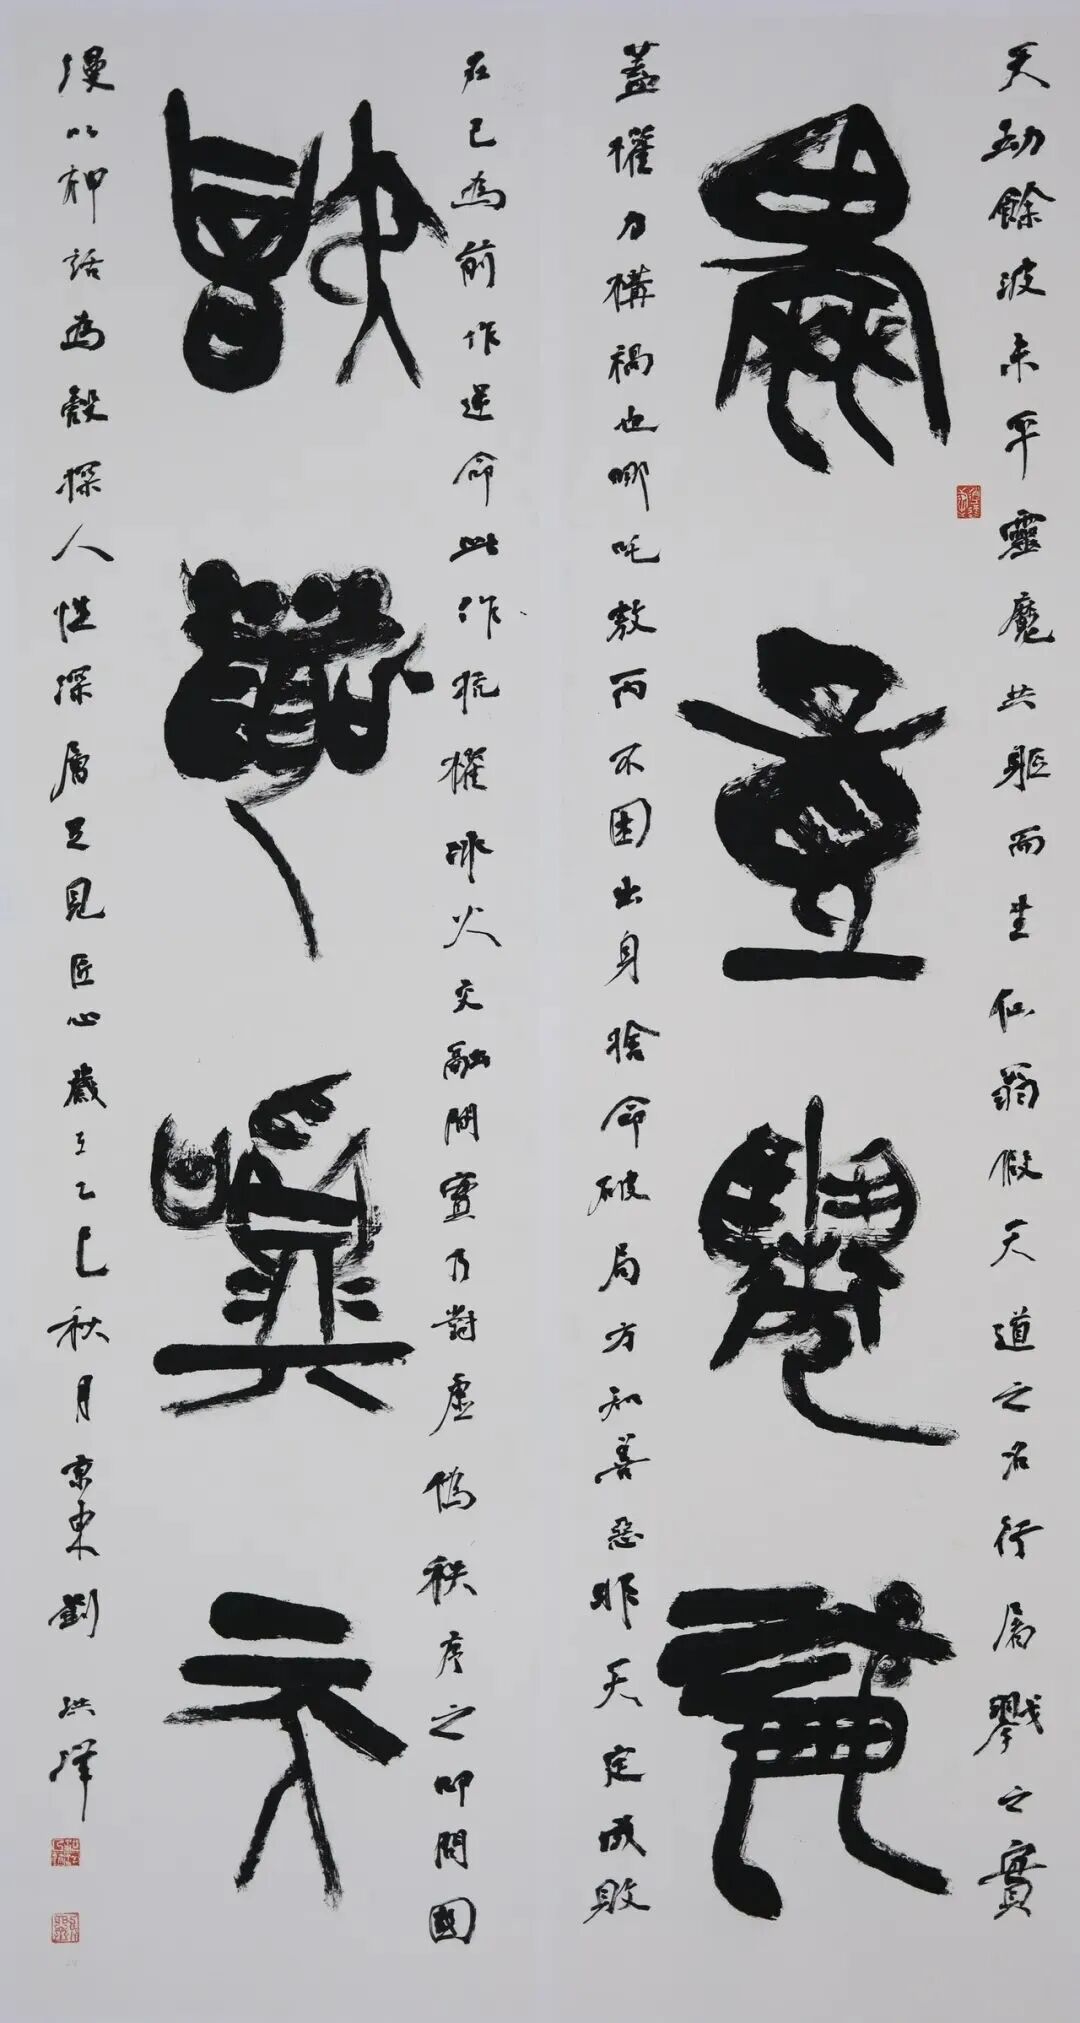 天劫餘波未平靈魔共軀而生仙翁假天道之名行屠戮之實
童
蓋權力構禍也哪吒敖丙不困出身捨命破局方知善惡非天定成敗
在己為前作逆命此作抗權冰火交融間實乃對虛偽秩序之叩問國
天
漫以神話為殼探人性深層足見匠心歲在乙巳秋月京東劉洪澤